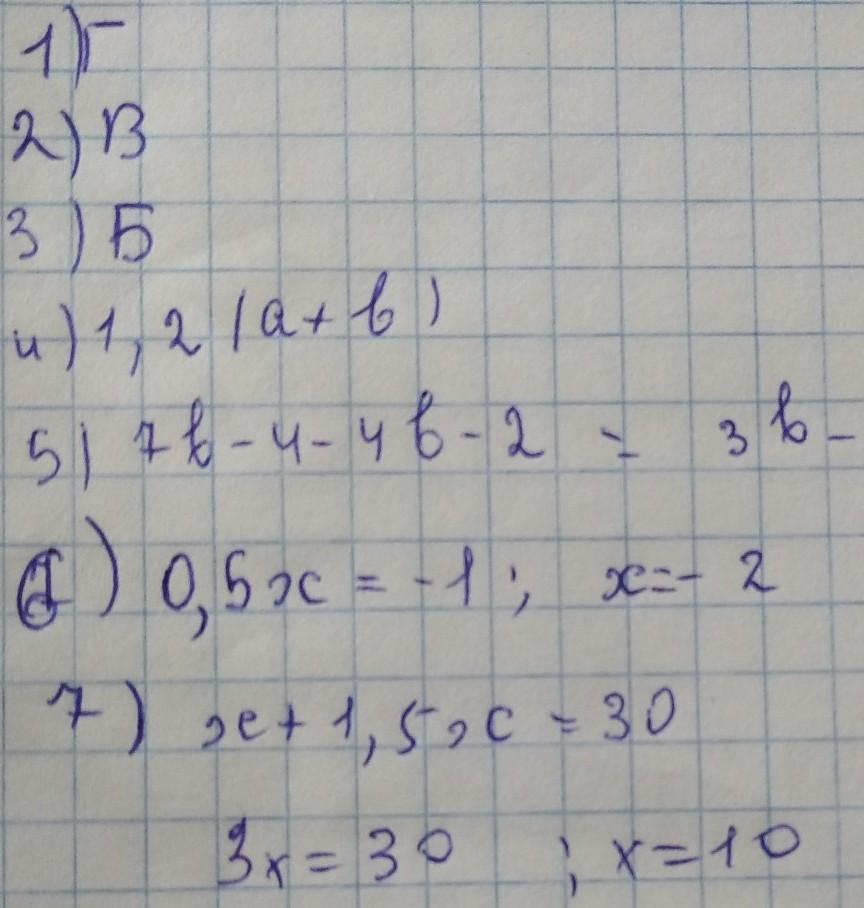 1) Г
2) В
3) Б
4) 1,2 (a + b)
5) 7b - 4 - 4b - 2 = 3b -
6) 0,5x = -1 ; x = - 2
7) x + 1,5x = 30
3x = 30 ; x = 10